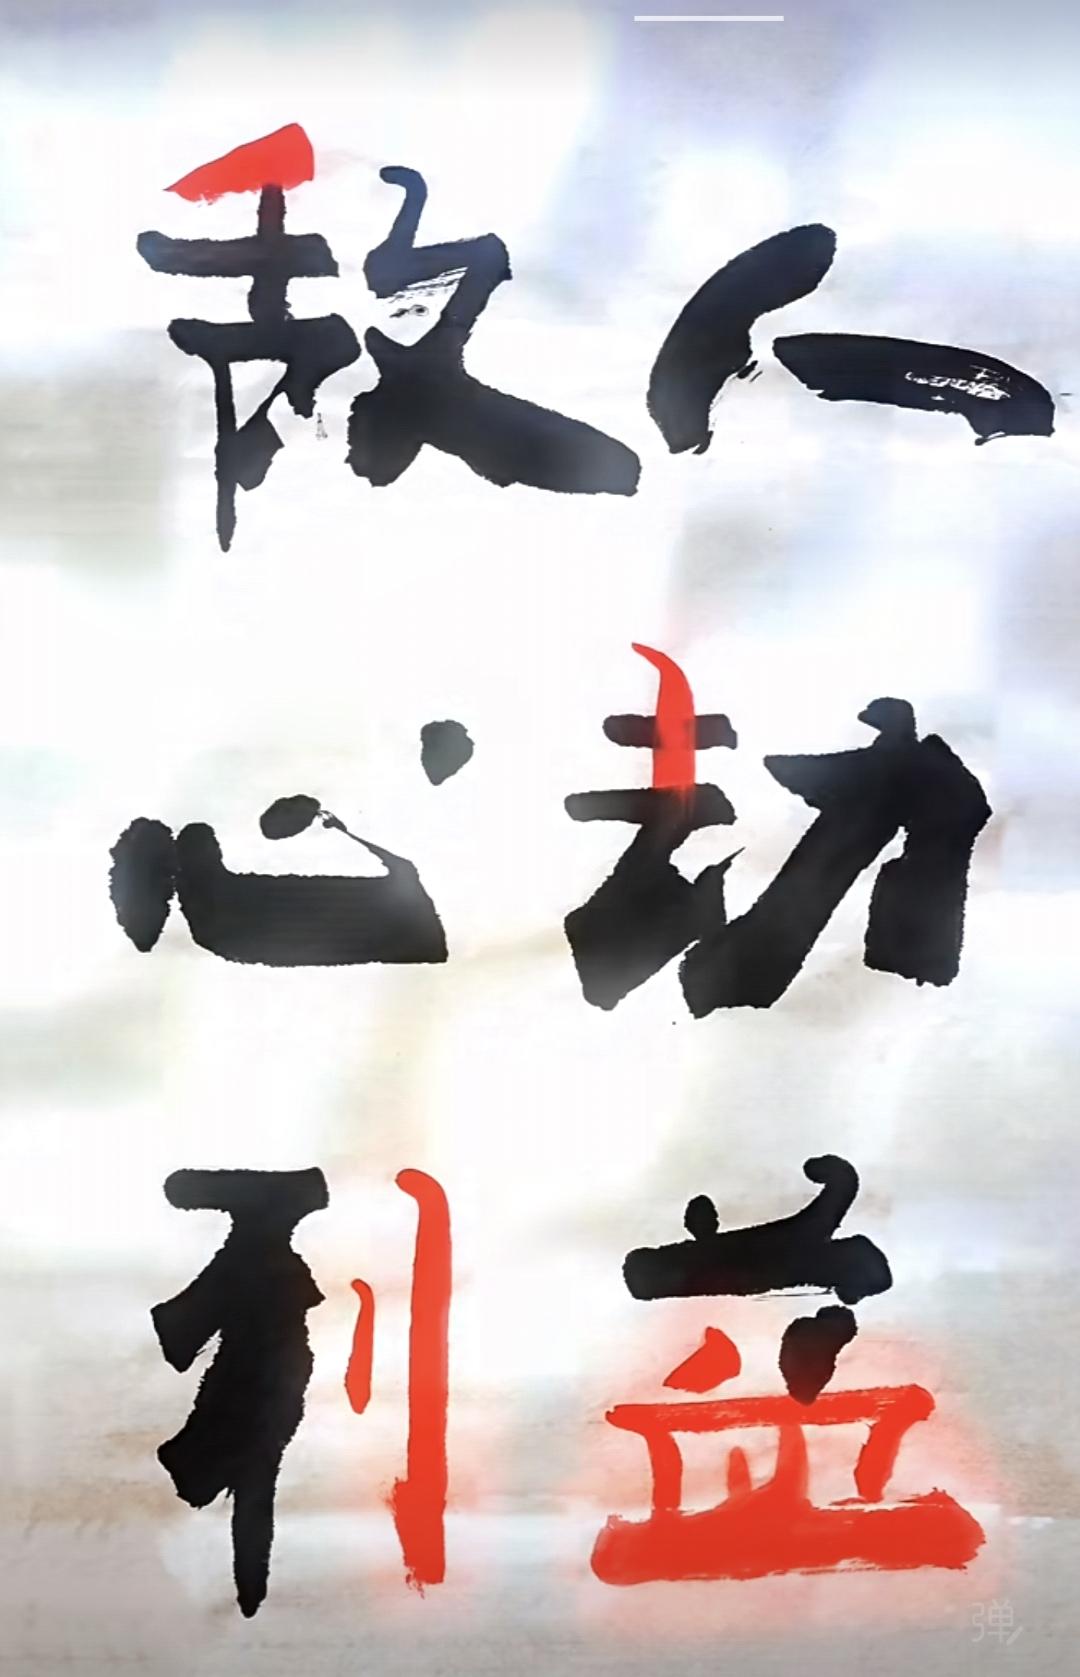 敌人
心劫
利益
弹